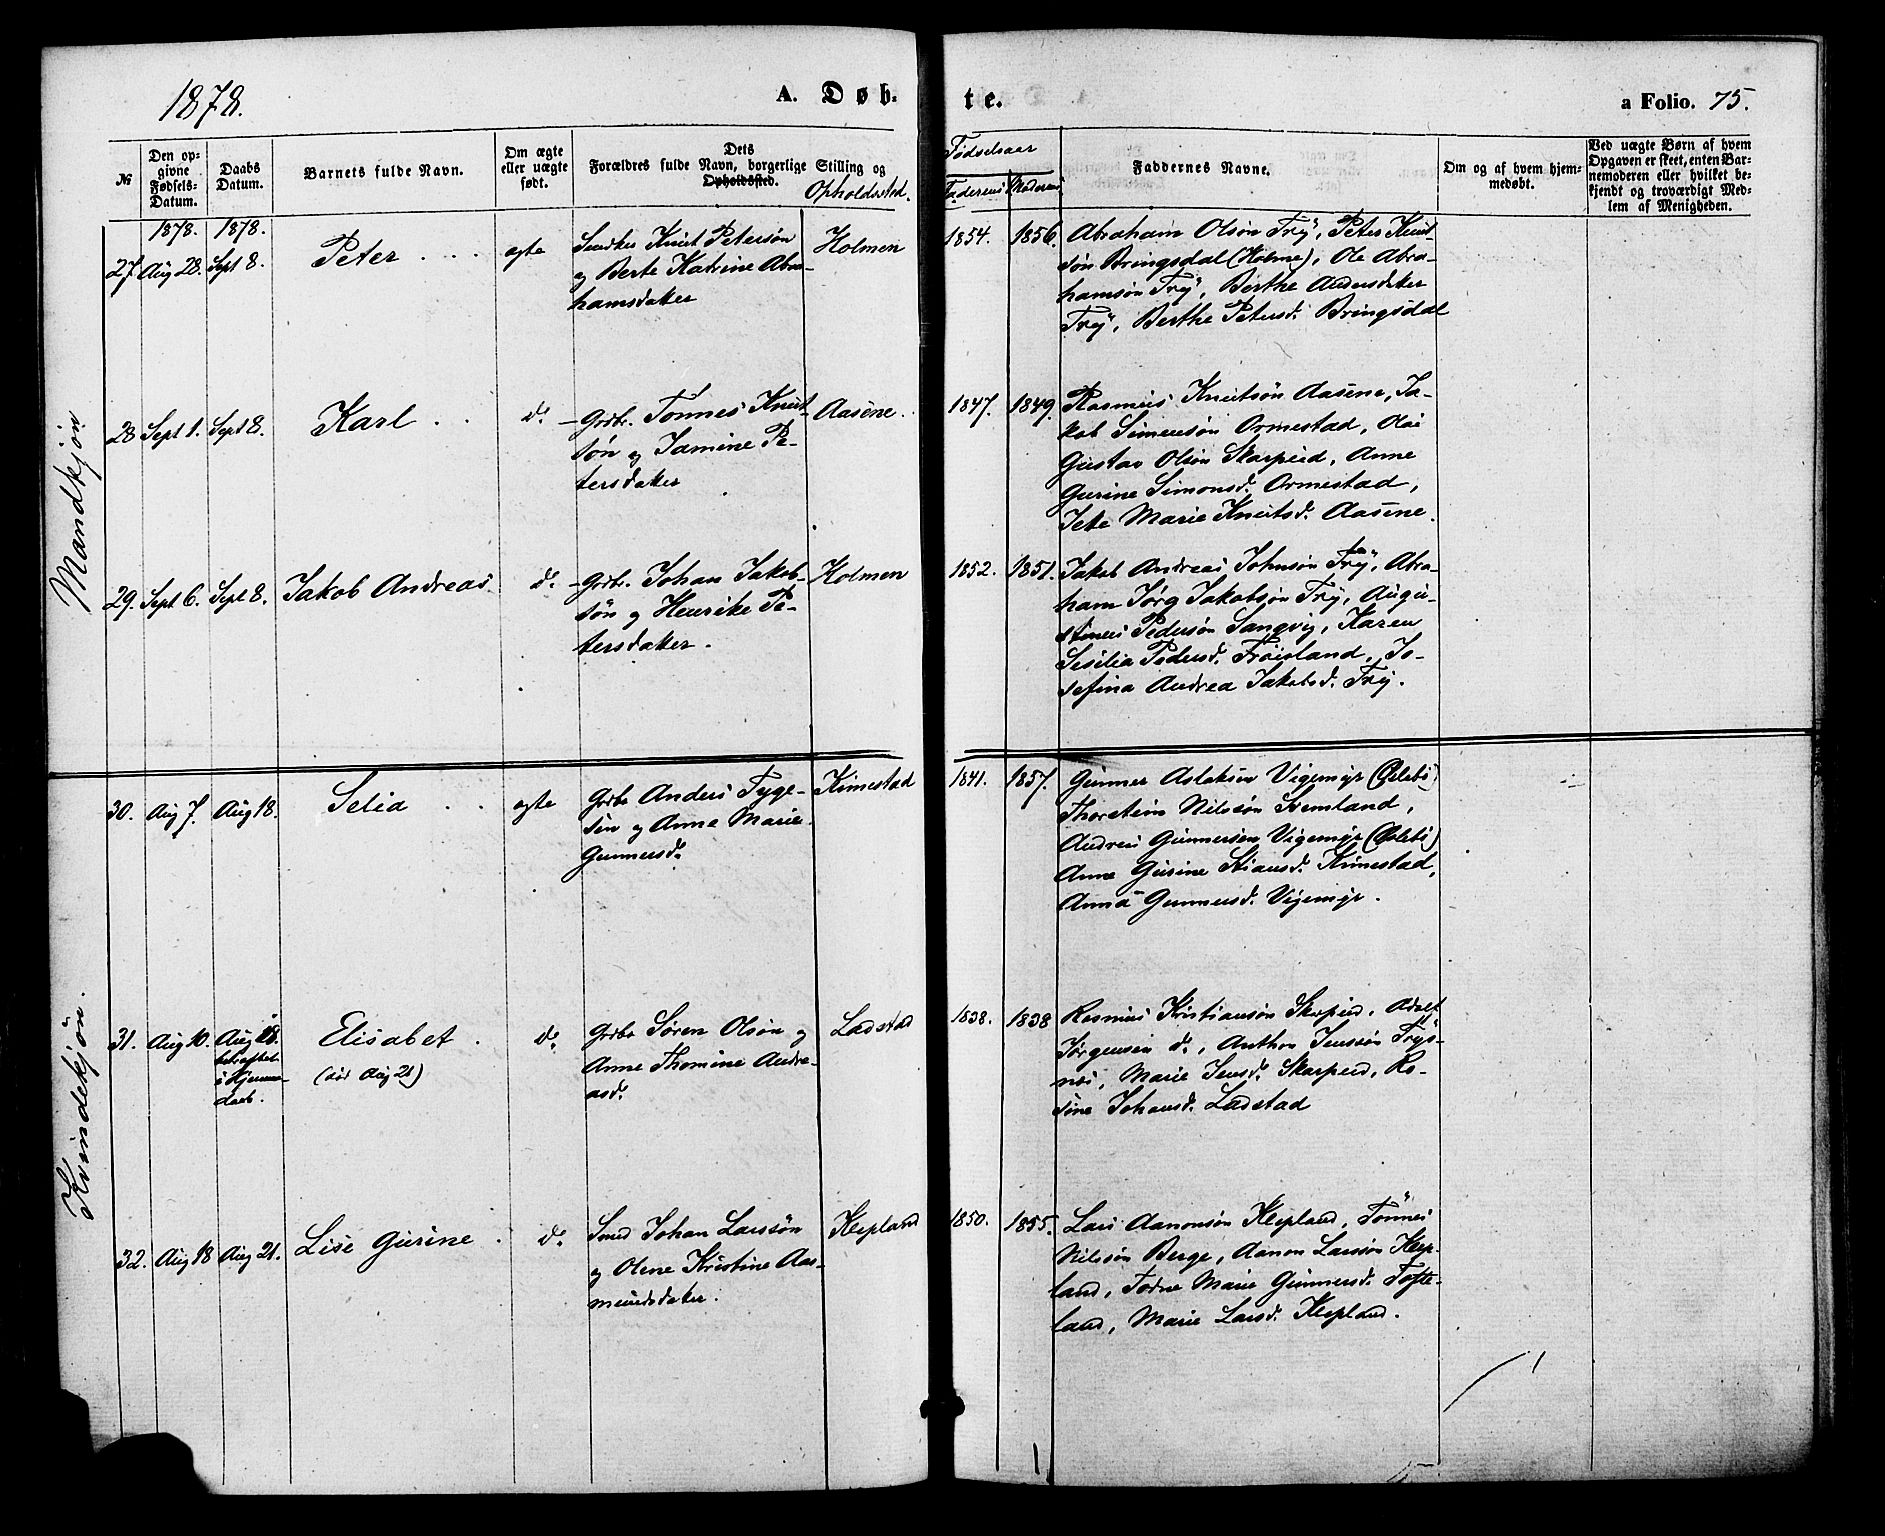 1878.
A. Døb-
te.
a Folio. 75.
№
Den op-
givne
Fødsels-
Datum.
Daabs
Datum.
Barnets fulde Navn.
Om ægte
eller uægte
født.
Dets
Forældres fulde Navn, borgerlige Stilling og
Opholdssted.
Opholdssted.
Fødselsaar
Faderens
Moderens
Faddernes Navne.
Om og af hvem hjem-
medøbt.
Ved uægte Børn af hvem
Opgaven er skeet, enten Bar-
nemoderen eller hvilket be-
kjendt og troværdigt Med-
lem af Menigheden.
Mandkjøn
1878.
1878.
27.
Aug 28.
Sept 8.
Peter
ægte
Knut Petersøn
og Berte Katrine Abra-
hamsdaker
Holmen
1854.
1856.
Abraham Olsøn Try, Peter Knut-
søn Bringsdal (Holme), Ole Abra-
hamsøn Try, Berthe Andersdaker
Try, Berthe Petersd. Bringsdal
28
Sept 1.
Sept 8.
Karl
do.
Grdbr. Tønnes Knut-
søn og Tamine Pe-
tersdaker
Aasene.
1847.
1849.
Rasmus Knutsøn Aasene, Ja-
kob Simensøn Ormestad, Olai
Gustav Olsøn Skarpeid, Anne
Gurine Simonsd. Ormestad,
Marie Knutsd. Aasene.
29.
Sept 6.
Sept 8.
Jakob Andreas
do.
Grdbr. Johan Jakob-
søn og Henrike Pe-
tersdaker.
Holmen
1852.
1851.
Jakob Andreas Johnsøn Try, Abra-
ham Jørg Jakobsøn Try, Augu-
stinus Pedersøn Langvig, Karen
Sesilia Pedersd. Frøisland, Jo-
sefina Andrea Jakobsd. Try.
Kvindekjøn.
30.
Aug 7.
Aug 18.
Selia
ægte
Grdbr Anders Tyge-
sen og Anne Marie
Gunnersd.
Kimestad
1841.
1857.
Gunner Aslaksen Vigemyr (Øslebø)
Thorstein Nilssøn
Andreas Gunnersen Vigemyr (Øslebø)
Anne Gurine Stiansd. Kimestad,
Anna Gunnersd. Vigemyr.
31.
Aug 10.
Aug 18.
betræftet
i Hjemme-
daab.
Elisabet
(død Aug 21)
do.
Grdbr Søren Olsøn og
Anne Thomine Andre-
asd.
Ladstad
1838.
1838
Rasmus Kristiansøn Skarpeid, Adolf
Jørgensen do., Anthon Jenssøn Trys-
nes, Marie Jensd. Skarpeid, Ro-
sine Johansd. Ladstad
32.
Aug 18
Aug 21.
Lise Gurine
do.
Smed Johan Larssøn
og Olene Kristine Aas-
mundsdaker.
Klepland
1850.
1855.
Lars Aanonsøn Klepland, Tønnes
Nilssøn Berge, Aanon Larssøn Klep-
land, Todne Marie Gunnersd. Tofte-
land, Marie Larsd. Klepland.